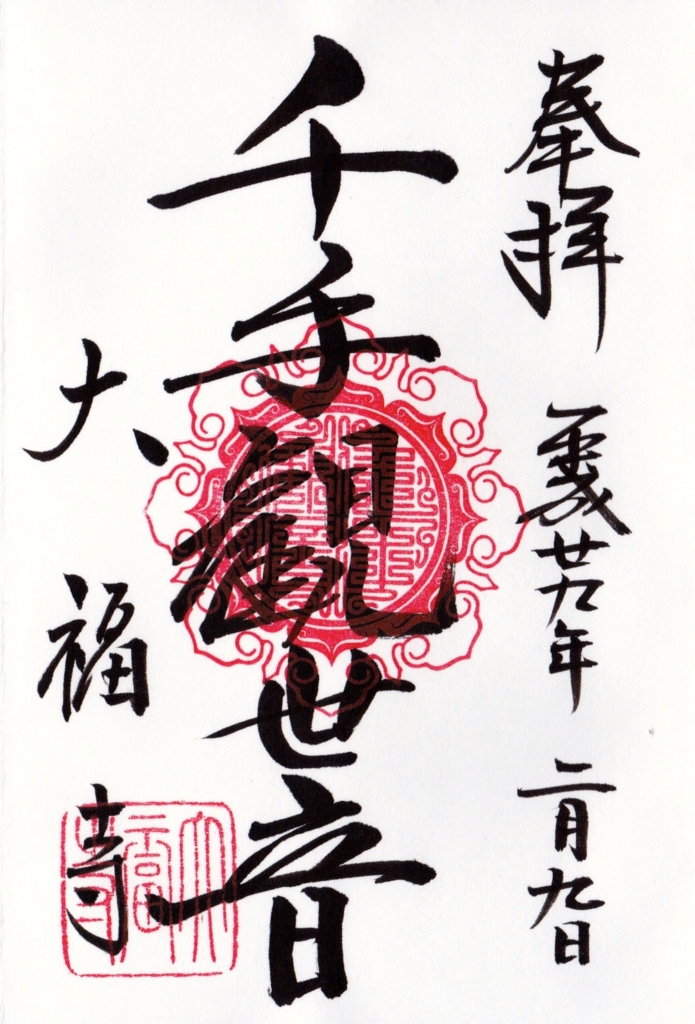 奉拝
平成廿九年
二月九日
千手観世音
大福寺
大福寺